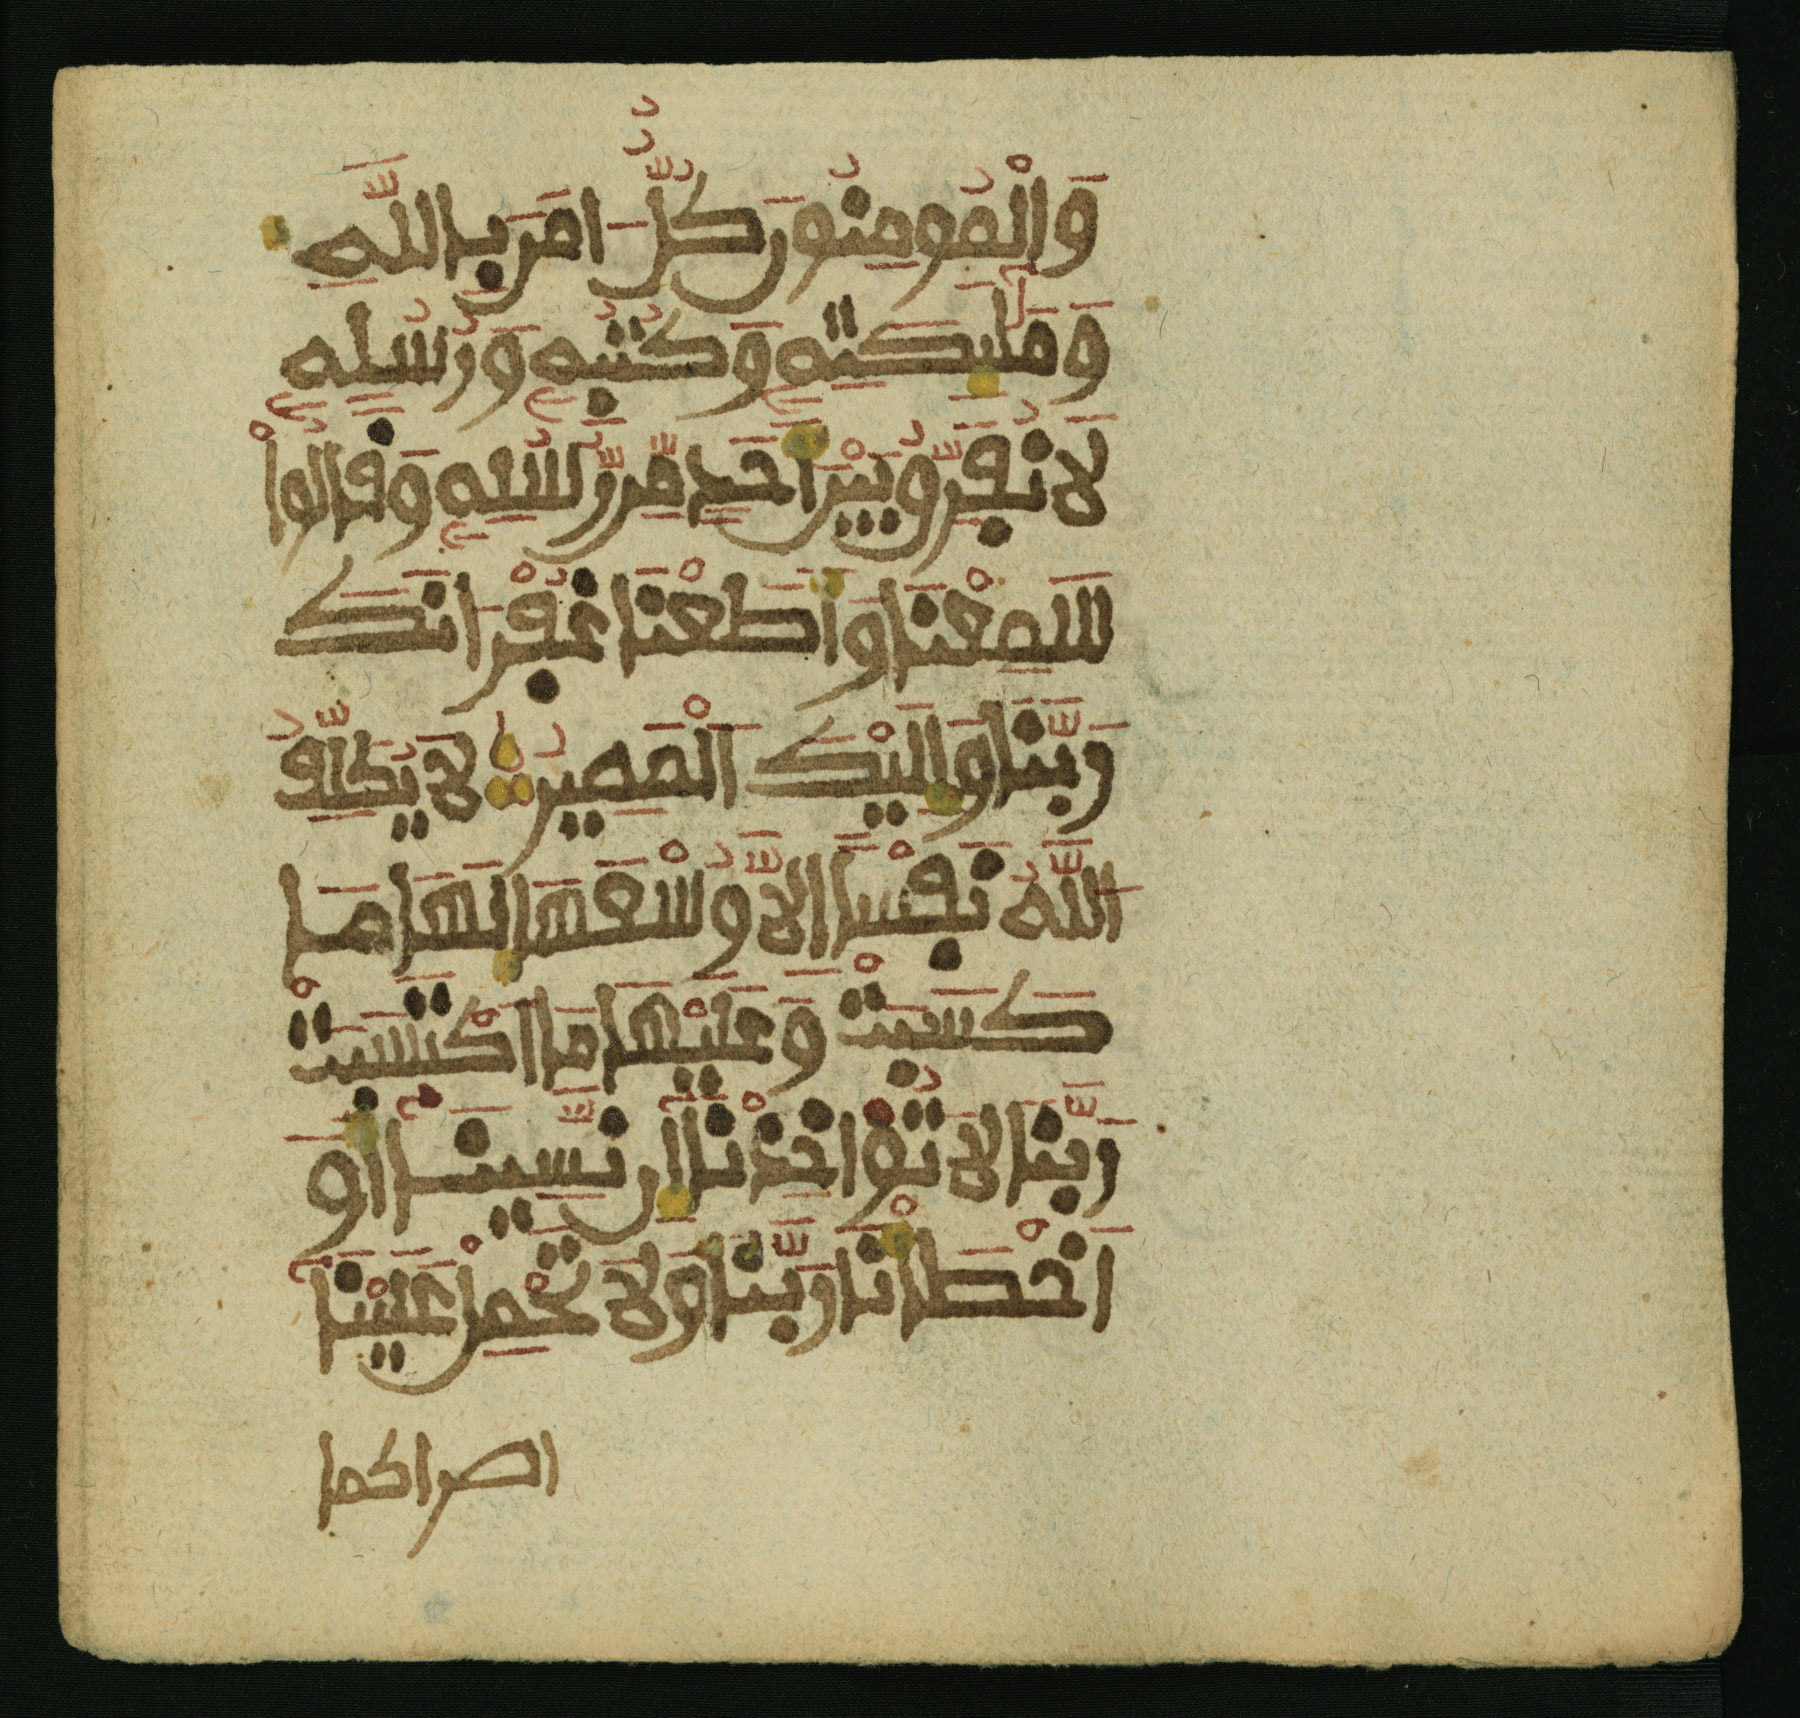 وَالْمُومِنُونَ كُلٌّ امَنَ بِاللَّهِ
وَمَلَٰٓئِكَتِهِۦ وَكُتُبِهِۦ وَرُسُلِهِۦ
لَا نُڢَرِّقُ بَيْنَ أَحَدٍ مِّن رُّسُلِهِۦ وَقَالُواْ
سَمِعْنَا وَأَطَعْنَا غُڢْرَانَكَ
رَبَّنَا وَإِلَيْكَ الْمَصِيرُ لَا يُكَلِّڢُ
اللَّهُ نَڢْساً اِلَّا وُسْعَهَا لَهَا مَا
كَسَبَتْ وَعَلَيْهَا مَا اَكْتَسَبَتْ
رَبَّنَا لَا تُؤَاخِذْنَآ إِن نَّسِينَآ أَوْ
اَخْطَأْنَا رَبَّنَا وَلَا تَحْمِلْ عَلَيْنَآ
اصراكما